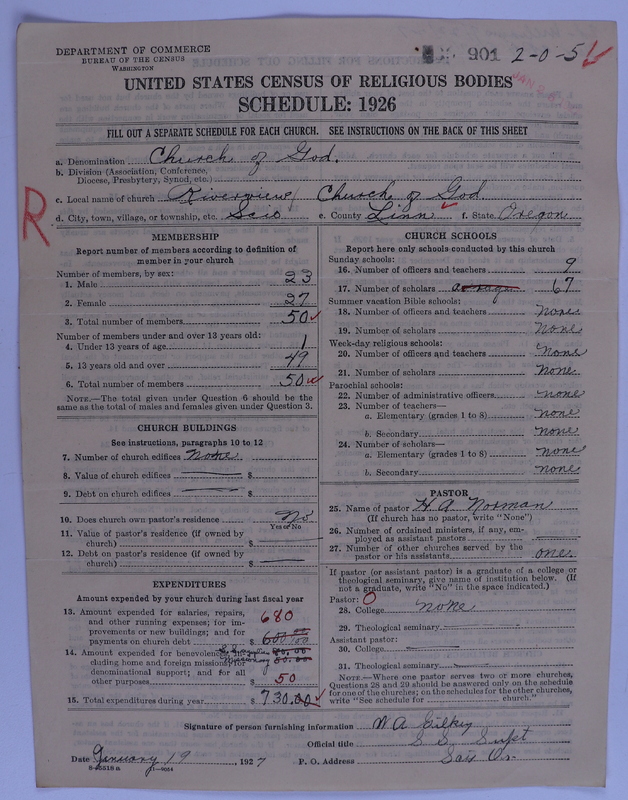 DEPARTMENT OF COMMERCE
BUREAU OF THE CENSUS
WASHINGTON
901 2-0-5
UNITED STATES CENSUS OF RELIGIOUS BODIES
SCHEDULE: 1926
FILL OUT A SEPARATE SCHEDULE FOR EACH CHURCH. SEE INSTRUCTIONS ON THE BACK OF THIS SHEET
a. Denomination Church of God.
b. Division (Association, Conference, Diocese, Presbytery, Synod, etc.)
c. Local name of church Riverview Church of God
d. City, town, village, or township, etc. Scio e. County Linn f. State Oregon
R
MEMBERSHIP
Report number of members according to definition of member in your church
Number of members, by sex:
1. Male 23
2. Female 27
3. Total number of members 50
Number of members under and over 13 years old:
4. Under 13 years of age 1
5. 13 years old and over 49
6. Total number of members 50
NOTE.—The total given under Question 6 should be the same as the total of males and females given under Question 3.
CHURCH BUILDINGS
See instructions, paragraphs 10 to 12
7. Number of church edifices none
8. Value of church edifices $
9. Debt on church edifices $
10. Does church own pastor's residence No
Yes or No
11. Value of pastor's residence (if owned by church) $
12. Debt on pastor's residence (if owned by church) $
EXPENDITURES
Amount expended by your church during last fiscal year
13. Amount expended for salaries, repairs, and other running expenses; for improvements or new buildings; and for payments on church debt $ 600.00
680
14. Amount expended for benevolences, including home and foreign missions; for denominational support; and for all other purposes $ 50
S.S. Supplies 80.00
Missionary 50.00
15. Total expenditures during year $ 730.00
CHURCH SCHOOLS
Report here only schools conducted by this church
Sunday schools:
16. Number of officers and teachers 9
17. Number of scholars average 67
Summer vacation Bible schools:
18. Number of officers and teachers None
19. Number of scholars None
Week-day religious schools:
20. Number of officers and teachers None
21. Number of scholars None
Parochial schools:
22. Number of administrative officers none
23. Number of teachers—
a. Elementary (grades 1 to 8) none
b. Secondary none
24. Number of scholars—
a. Elementary (grades 1 to 8) none
b. Secondary none
PASTOR
25. Name of pastor H. A. Norman
(If church has no pastor, write "None")
26. Number of ordained ministers, if any, employed as assistant pastors
27. Number of other churches served by the pastor or his assistants one
If pastor (or assistant pastor) is a graduate of a college or theological seminary, give name of institution below. (If not a graduate, write "No" in the space indicated.)
Pastor: O
28. College none
29. Theological seminary
Assistant pastor:
30. College
31. Theological seminary
NOTE.—Where one pastor serves two or more churches, Questions 28 and 29 should be answered only on the schedule for one of the churches; on the schedules for the other churches, write "See schedule for church."
Signature of person furnishing information W A Gilkey
Official title S. S. Supt
Date January 19, 1927 P. O. Address Scio Or.